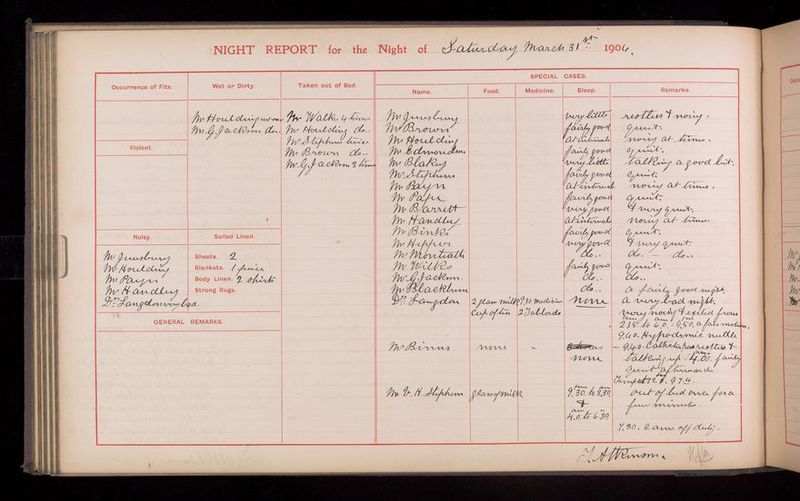 NIGHT REPORT for the Night of Saturday March 31st 1906.
Occurrence of Fits.
Wet or Dirty.
Taken out of Bed.
SPECIAL CASES.
Name.
Food.
Medicine.
Sleep.
Remarks.
Mr Houlding
Mr. G. Jackson do..
Mr Walks 4 times
Mr Houlding do..
Mr Stephens twice
Mr Brown do..
Mr. G. Jackson 3 times
Violent.
Noisy.
Mr Houlding
Mr Payn
Mr Handley
Dr. Langdon very bad.
Soiled Linen.
Sheets. 2
Blankets. 1 piece
Body Linen. 2 shirts
Strong Rugs.
GENERAL REMARKS.
very little restless & noisy.
Mr Brown fairly good quiet.
Mr Houlding at intervals noisy at times.
Mr. Edmondson fairly good quiet.
Mr Blakey very little talking a good bit.
Mr Stephens fairly good quiet.
Mr Payn at intervals noisy at times.
Mr Pape fairly good quiet.
Mr Barritt very good & very quiet.
Mr Handley at intervals noisy at times.
Mr Binks fairly good quiet.
very good & very quiet.
Mr Monteath do.. do. — do..
Mr Wilks fairly good quiet.
Mr. G. Jackson do.. do..
Mr Blackburn do.. a fairly good night.
Dr. Langdon 2 glass milk 9.30. medicine none a very bad night.
Cup of tea 2 Tabloids very noisy & excited from
2.15 to 6.0. 9.50. a fair motion.
Mr Binns none – 9.40.
none talking up 4.0. fairly
quiet afterwards
97.4.
Mr V. H. Stephens glass of milk 9.30. to 3.30 out of bed once for a
& few minutes.
4.0. to 6.30
7.30. Came off duty.
J. Atkinson.